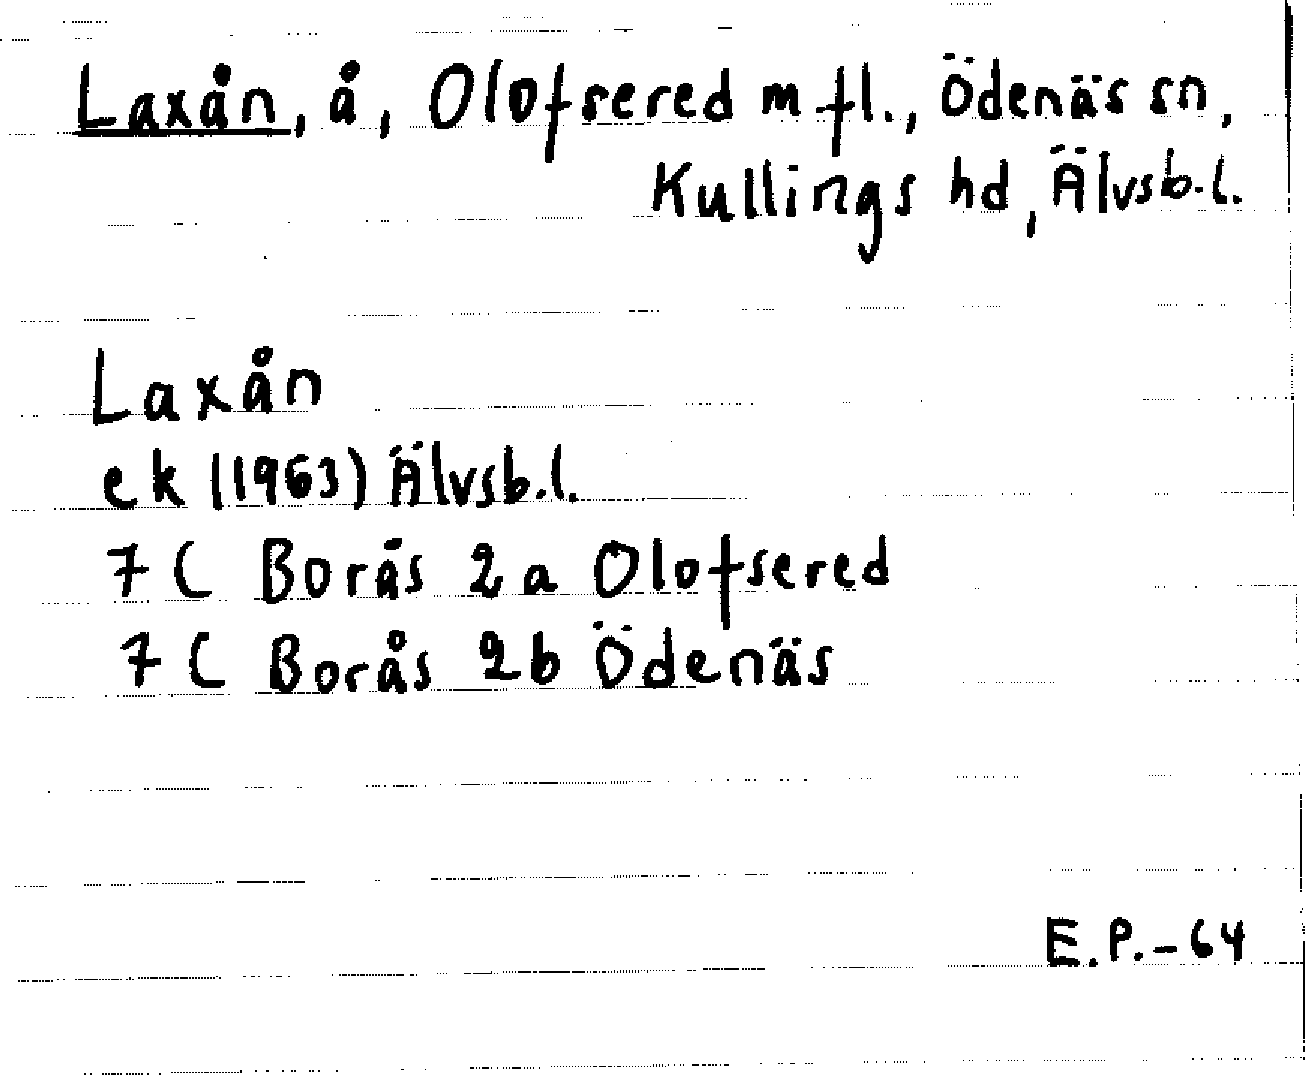 Laxån, å, Olofsered m fl., Ödenäs sn,
Kullings hd, Älvsb.l.
Laxån
ek (1963) Älvsb.l.
7 C Borås 2a Olofsered
7 C Borås 2b Ödenäs
E.P.-64